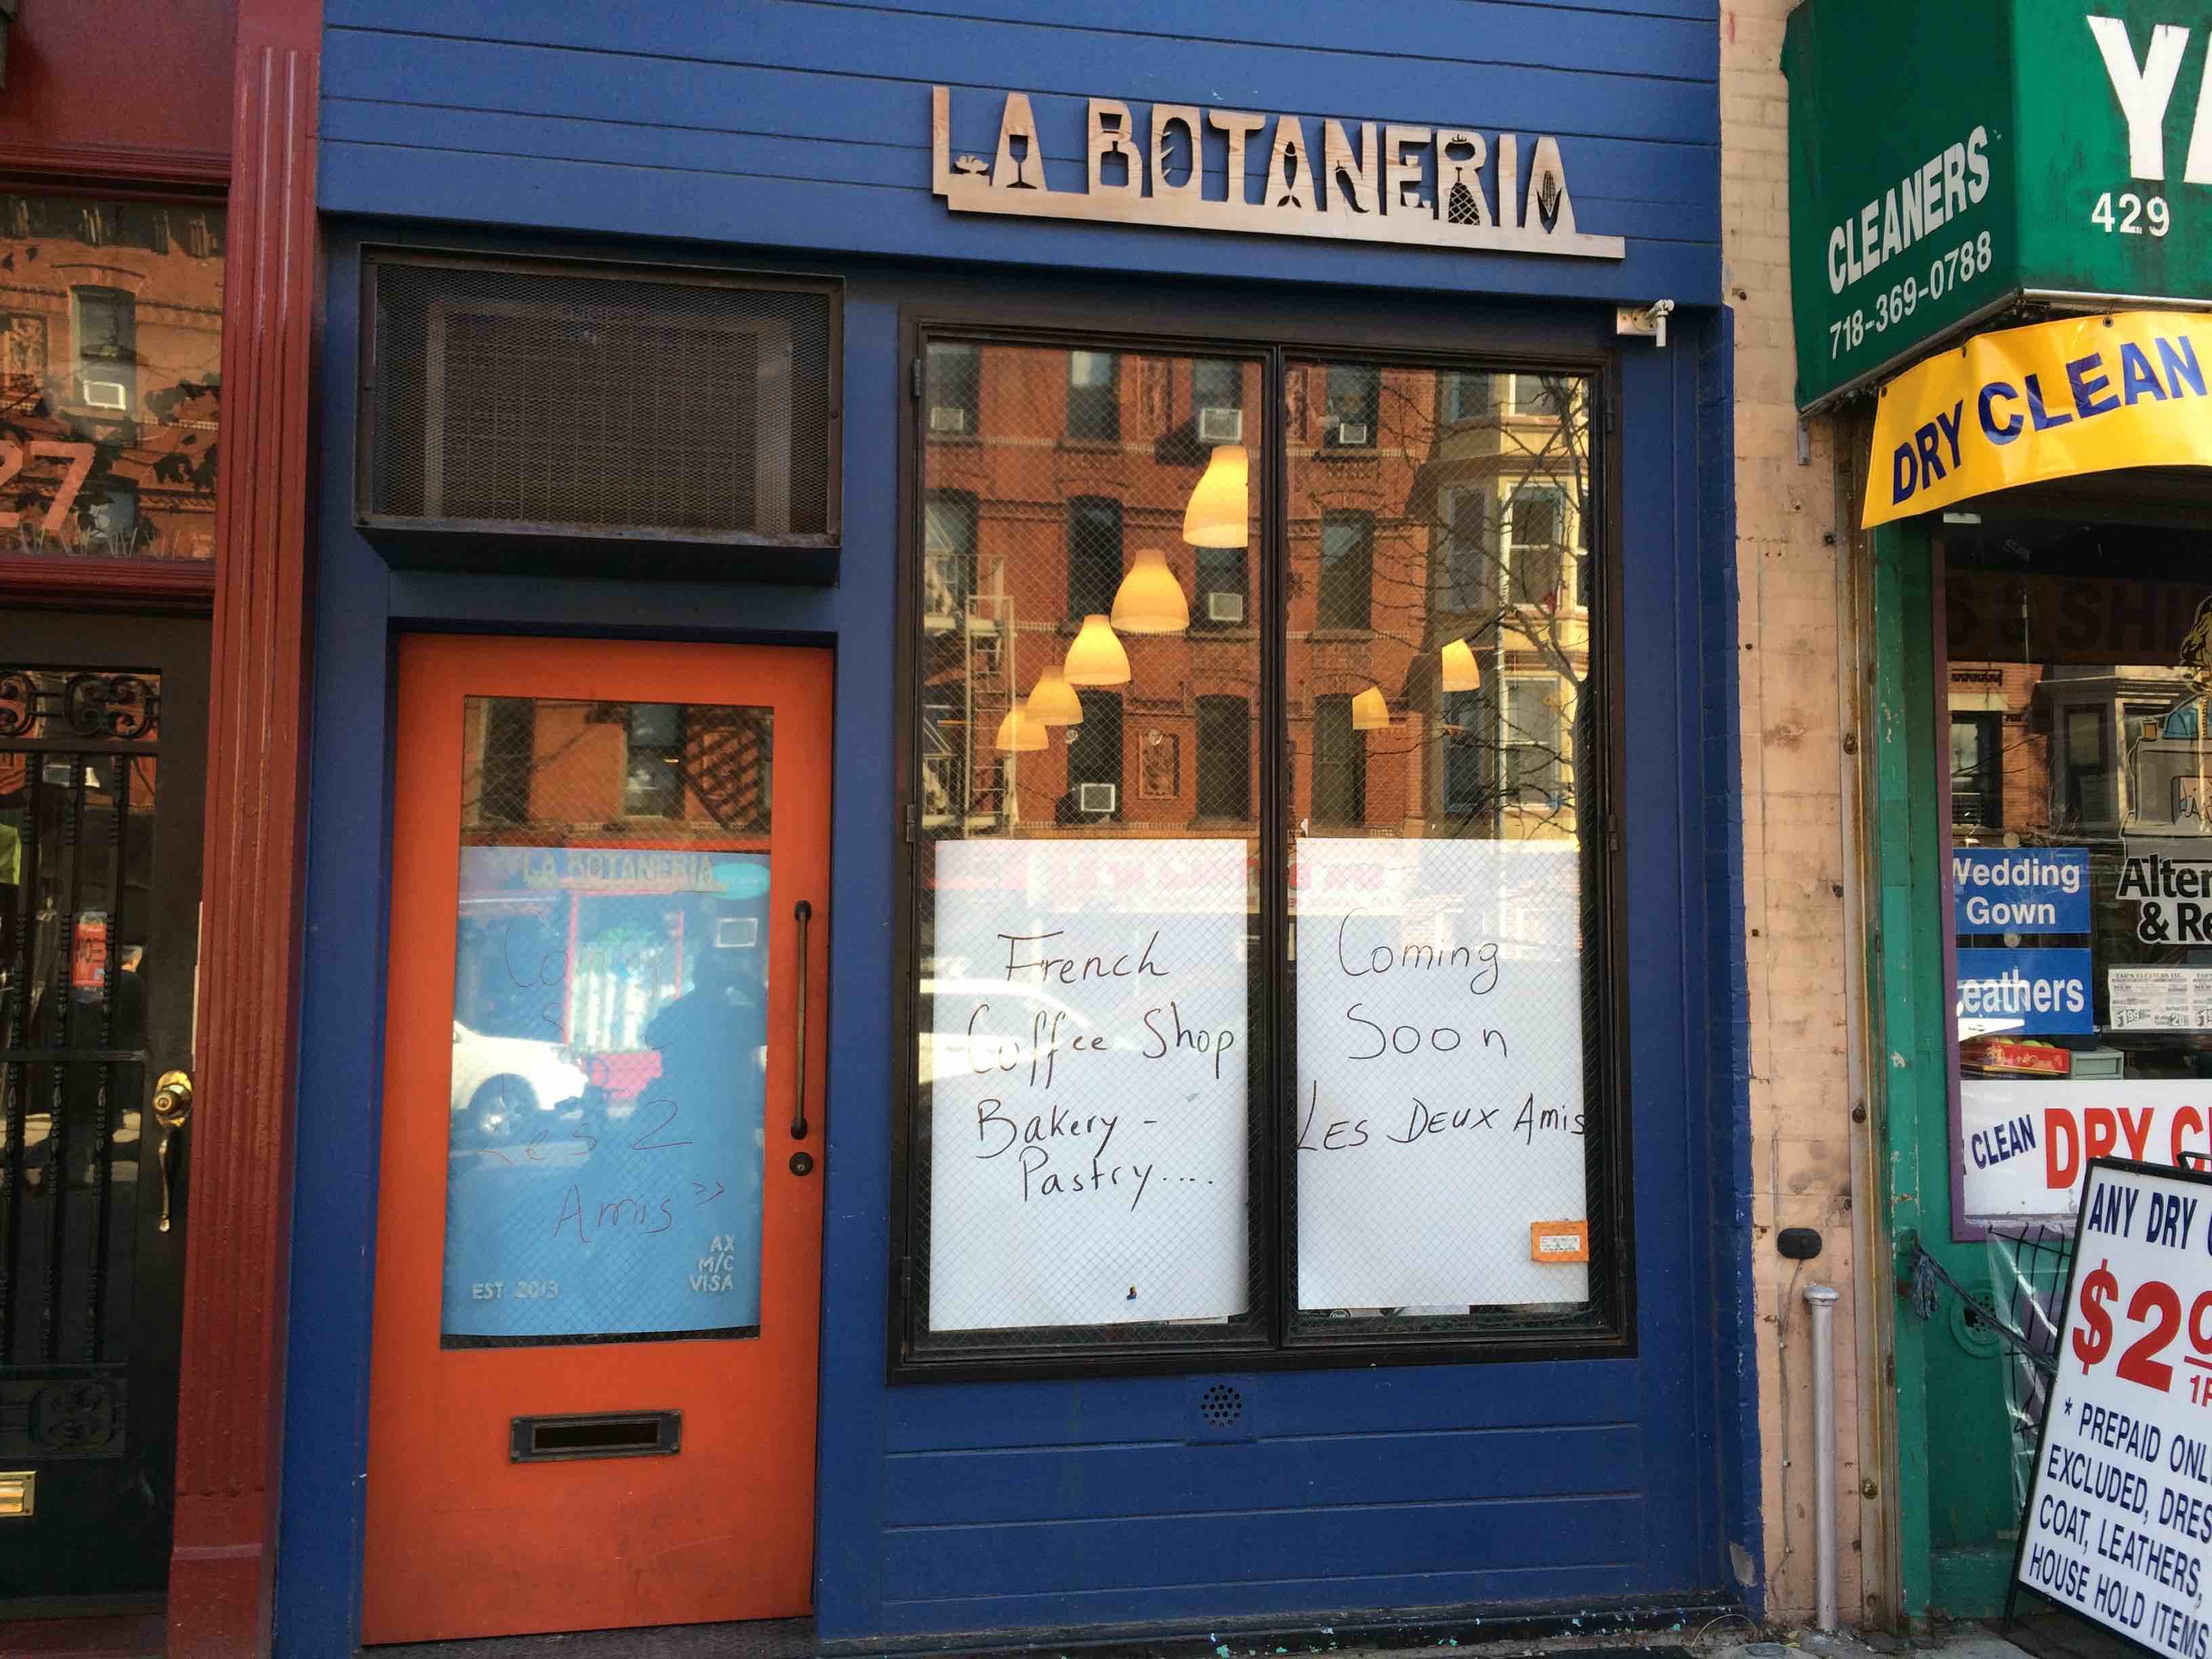 LA BOTANERIA
27
LA BOTANERIA
Coming
S
Les 2
Amis"
AX
M/C
VISA
EST 2013
French
Coffee Shop
Bakery -
Pastry....
Coming
Soon
LES DEUX Amis
CLEANERS
718-369-0788
YA
429
DRY CLEAN
Wedding
Gown
Leathers
Alter
& Re
CLEAN
DRY C
ANY DRY
$2
* PREPAID ONL
EXCLUDED, DRES
COAT, LEATHERS,
HOUSE HOLD ITEMS